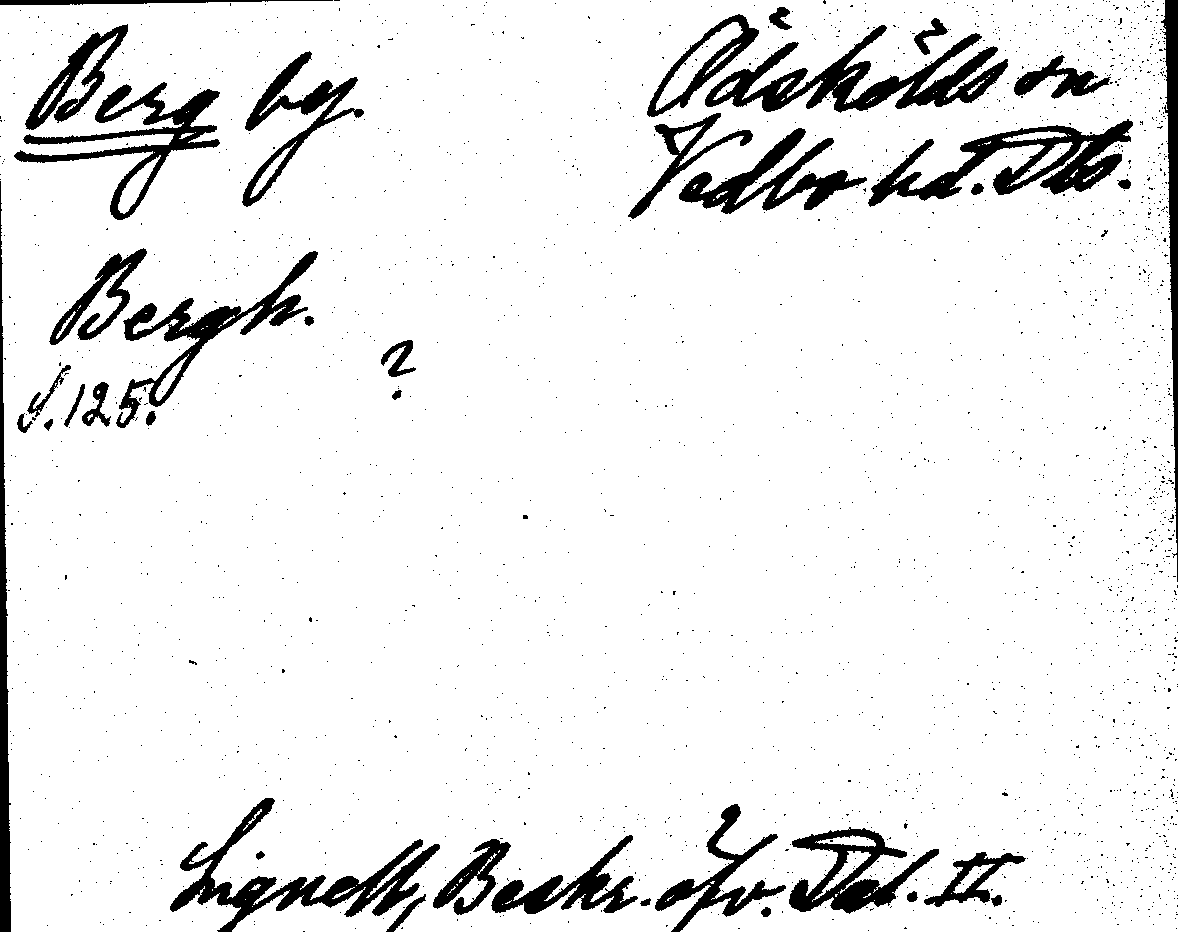 Berg by.
Ödskölds sn
Vedbo hd. Dls.
Bergh.
?
S. 125.
Lignell, Beskr. öfv. Dal. II.